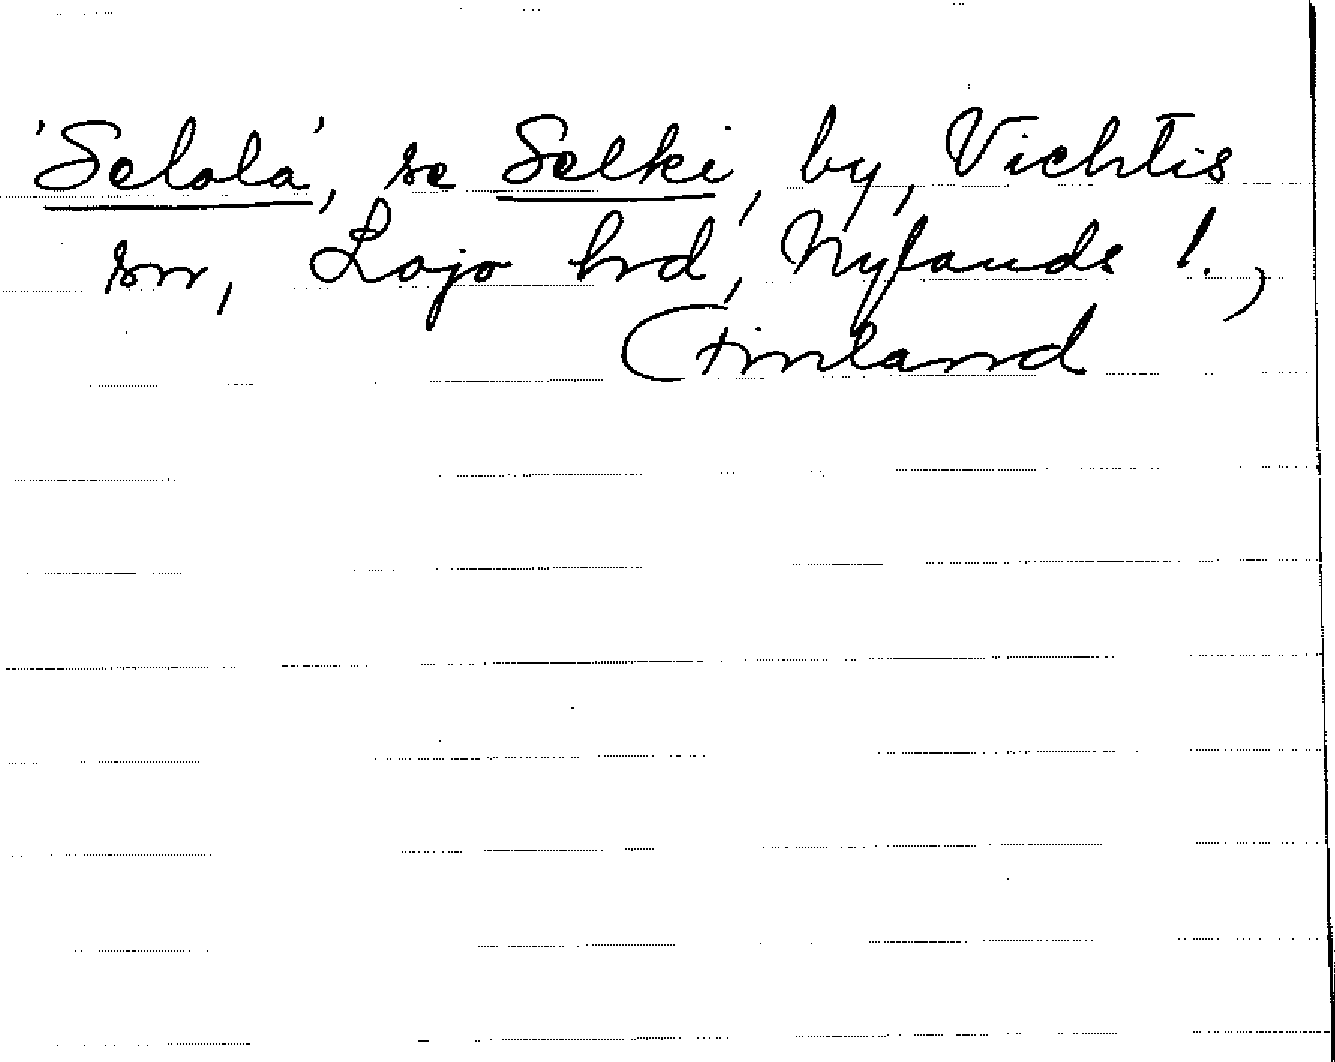 'Selola', se Selki, by, Vichtis
sn, Lojo hrd, Nylands l.,
(Finland